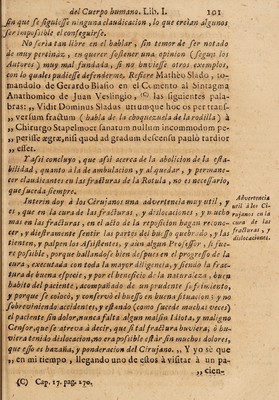 del Cuerpo humano. Lib. I. 101
sin que se siguiesse ninguna claudicacion, lo que creìan algunos
ser impossible el conseguirse.
No sería tan libre en el hablar, sin temor de ser notado
de muy perezòso, en querer sostener una opinion (segun los
Autores) muy mal fundada, si no huviesse otros exemplos,
con lo quales pudiesse defenderme. Refiere Mathèo Slado, to-
mandolo de Gerardo Blasio en el Comento al Sintagma
Anathomico de Juan Veslingio, las siguientes palà-
bras: „ Vidit Dominus Sladus utrumque hoc os per trans-
„ versum fractum (habla de la choquezuela de la rodilla) à
„ Chirurgo Stapelmoer sanatum nullum incommodum pe-
„ perisse ægræ, nisi quod ad gradum defensu paulò tardior
„ esset.
Y assi concluyo, que assi acerca de la abolicion de la esta-
bilidad, quanto à la de ambulacion, y al quedar, y permane-
cer claudicantes en las fracturas de la Rotula, no es necessario,
que suceda siempre.
Interin doy à los Cirujanos una advertencia muy util, y
es, que en la cura de las fracturas, y dislocaciones, y mucho
mas en las fracturas, en el acto de la reposicion hagan recono-
cer, y diestramente sentir las partes del huesso quebrado, y las
tienten, y palpen los Assistentes, y aùn algun Professor, si fue-
re possible, porque hallandose bien despues en el progresso de la
cura, executada con toda la mayor diligencia, y siendo la frac-
tura de buena especie, y por el beneficio de la naturaleza, buen
habito del paciente, acompañado de un prudente sufrimiento,
y porque se colocò, y conservò el huesso en buena situacion; y no
sobreviniendo accidentes, y estando (como sucede muchas veces)
el paciente sin dolor, nunca falta algun malsin Idiota, y maligno
Censor, que se atreva à decir, que si tal fractura huviera, ò hu-
viera tenido dislocacion, no era possible estàr sin muchos dolores,
que esso es hazaña, y ponderacion del Cirujano. „ Y yo sè que
„ en mi tiempo, llegando uno de estos à visitàr à un pa-
„ cien-
Advertencia
util à los Ci-
rujanos en la
cura de las
fracturas, y
dislocaciones.
(C) Cap. 17. pag. 270.